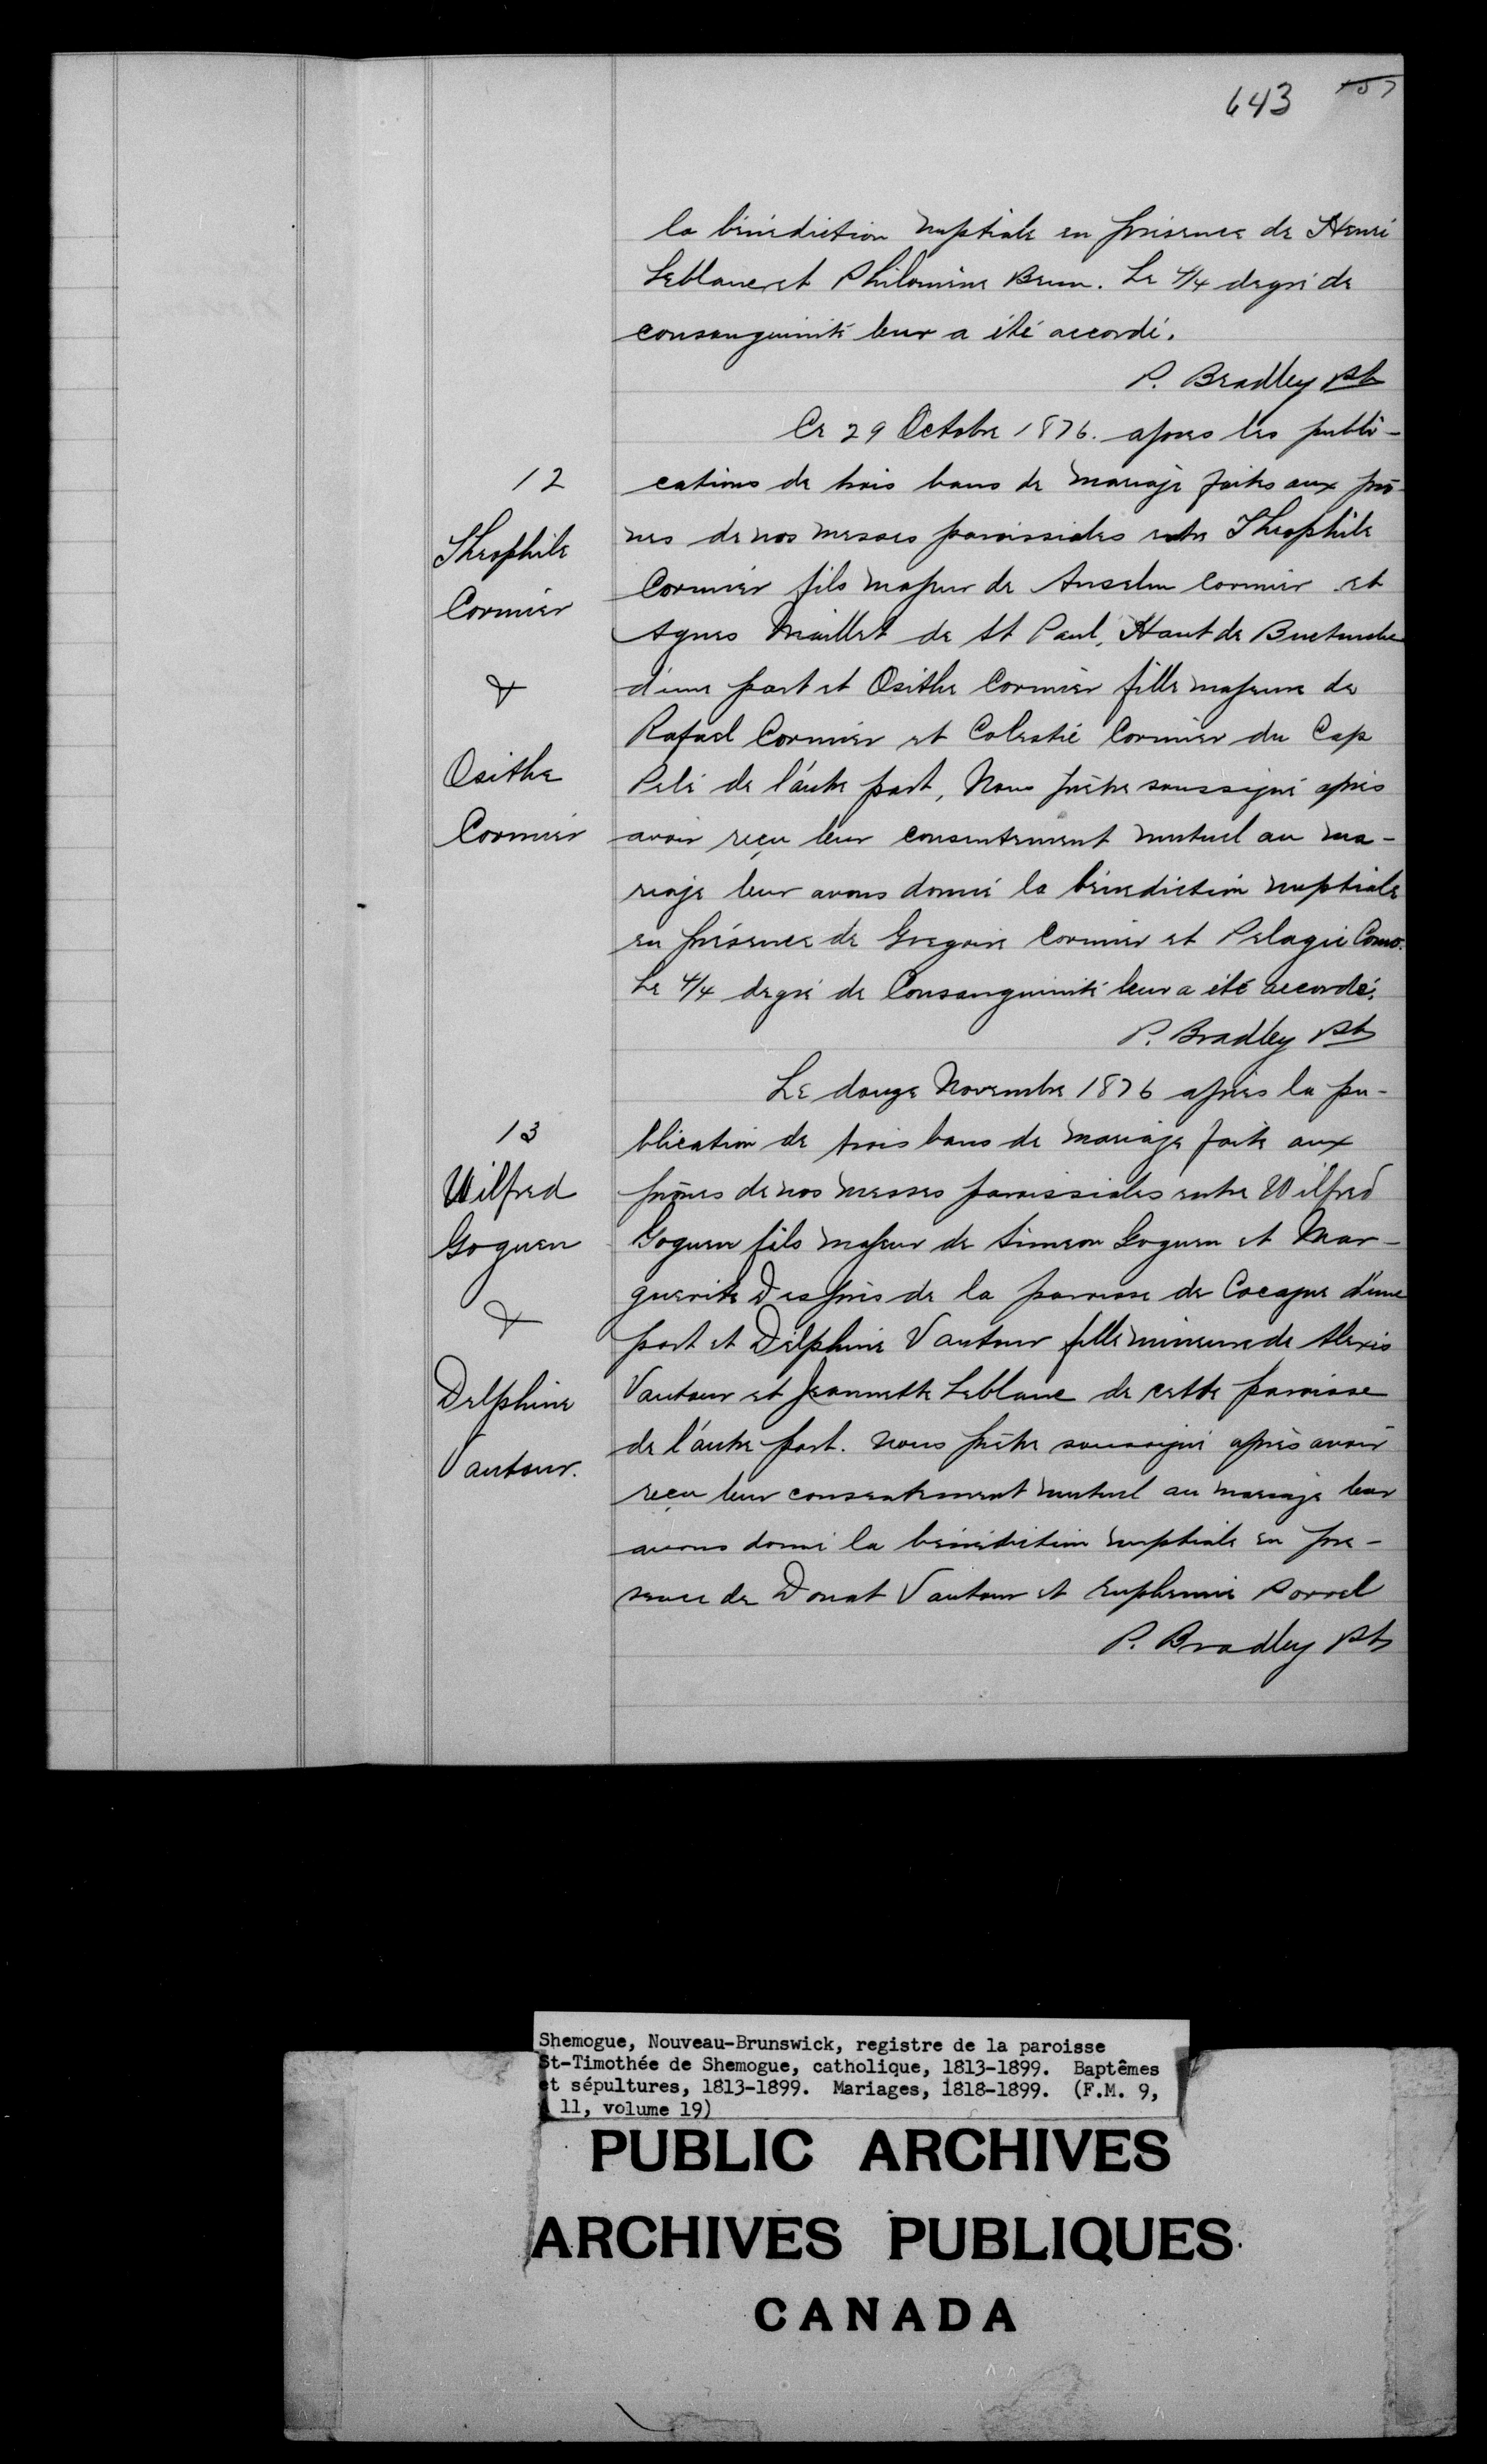 643
la bénédiction nuptiale en présence de Henri
Leblanc et Philomène Brun. Le 4/4 degré de
consanguinité leur a été accordé.
P. Bradley Pb
Ce 29 Octobre 1876. apres les publi-
12
cations de trois bans de mariage faites aux prô-
nes de nos messes paroissiales entre Theophile
Theophile
Cormier fils majeur de Anselm Cormier et
Cormier
Agnes Maillet de St Paul, Haut de Buctouche
&
d'une part et Osithe Cormier fille majeure de
Rafael Cormier et Celestie Cormier du Cap
Osithe
Pelé de l'autre part, Nous prêtre soussigné après
Cormier
avoir reçu leur consentement mutuel au ma-
riage leur avons donné la bénediction nuptiale
en présence de Gregoire Cormier et Pelagie Como.
Le 4/4 degré de Consanguinité leur a été accordé.
P. Bradley Pb
Le douze Novembre 1876 après la pu-
13
blication de trois bans de mariage faite aux
Wilfred
prônes de nos messes paroissiales entre Wilfred
Goguen
Goguen fils majeur de Simeon Goguen et Mar-
guerite Després de la paroisse de Cocagne d'une
&
part et Delphine Vautour fille mineure de Alexis
Delphine
Vautour et Jeannette Leblanc de cette paroisse
de l'autre part. Nous prêtre soussigné après avoir
Vautour.
reçu leur consentement mutuel au mariage leur
avons donné la bénédiction nuptiale en pre-
sence de Donat Vautour et Euphemie Porrel
P. Bradley Pb
Shemogue, Nouveau-Brunswick, registre de la paroisse
St-Timothée de Shemogue, catholique, 1813-1899. Baptêmes
et sépultures, 1813-1899. Mariages, 1818-1899. (F.M. 9,
11, volume 19)
PUBLIC ARCHIVES
ARCHIVES PUBLIQUES
CANADA